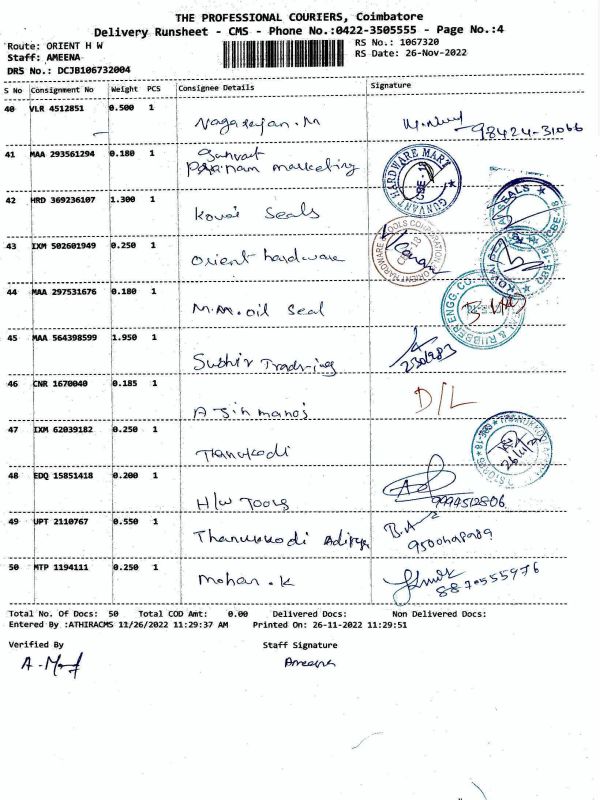 THE PROFESSIONAL COURIERS, Coimbatore
Delivery Runsheet - CMS - Phone No.:0422-3505555 - Page No.:4
Route: ORIENT H W
RS No.: 1067320
Staff: AMEENA
RS Date: 26-Nov-2022
DRS No.: DCJB106732004
S No Consignment No Weight PCS Consignee Details Signature
40 VLR 4512851 0.500 1 Nagarajan.M 98424-31066
41 MAA 293561294 0.180 1 Gunvant marketing
GUNVANT HARDWARE MART CBE-18
42 HRD 369236107 1.300 1 Kovai Seals
43 IXM 502601949 0.250 1 Orient hardware
44 MAA 297531676 0.180 1 M.M.oil Seal
45 MAA 564398599 1.950 1 Sudhir Trading
46 CNR 1670040 0.185 1 Ajinmanoj D/L
47 IXM 62039182 0.250 1 Thanukodi
48 EDQ 15851418 0.200 1 H/W Tools 9994512806
49 UPT 2110767 0.550 1 Thanukkodi Aditya B.A
50 MTP 1194111 0.250 1 Mohan.K 8870555976
Total No. Of Docs: 50 Total COD Amt: 0.00 Delivered Docs: Non Delivered Docs:
Entered By :ATHIRACMS 11/26/2022 11:29:37 AM Printed On: 26-11-2022 11:29:51
Verified By Staff Signature
Ameena